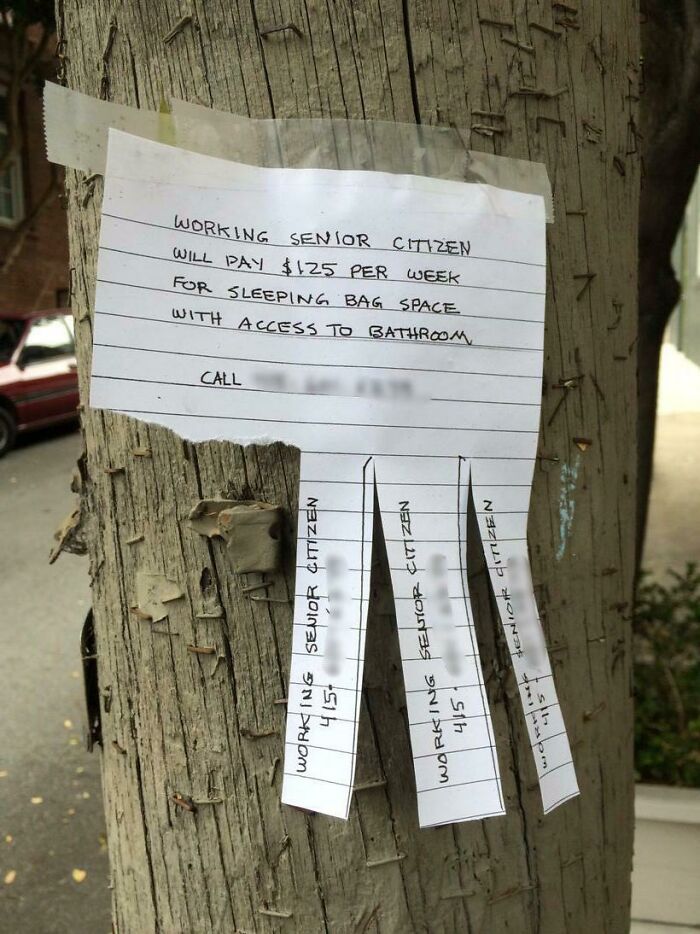 WORKING SENIOR CITIZEN
WILL PAY $125 PER WEEK
FOR SLEEPING BAG SPACE
WITH ACCESS TO BATHROOM
CALL
WORKING SENIOR CITIZEN
415-
WORKING SENIOR CITIZEN
415-
WORKING SENIOR CITIZEN
415-